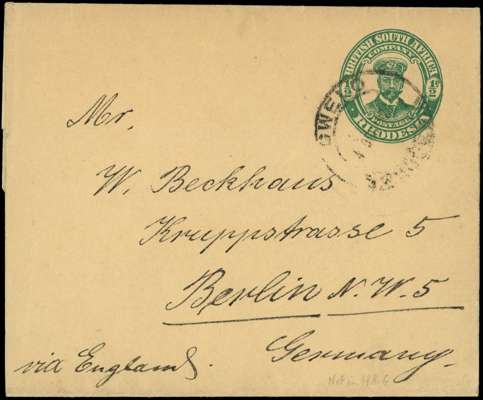 BRITISH SOUTH AFRICA
COMPANY
½ ½
POSTAGE
RHODESIA
GWELO
Mr.
W. Beckhaus
Kruppstrasse 5
Berlin N.W. 5
Germany.
via England.
Not in H&G